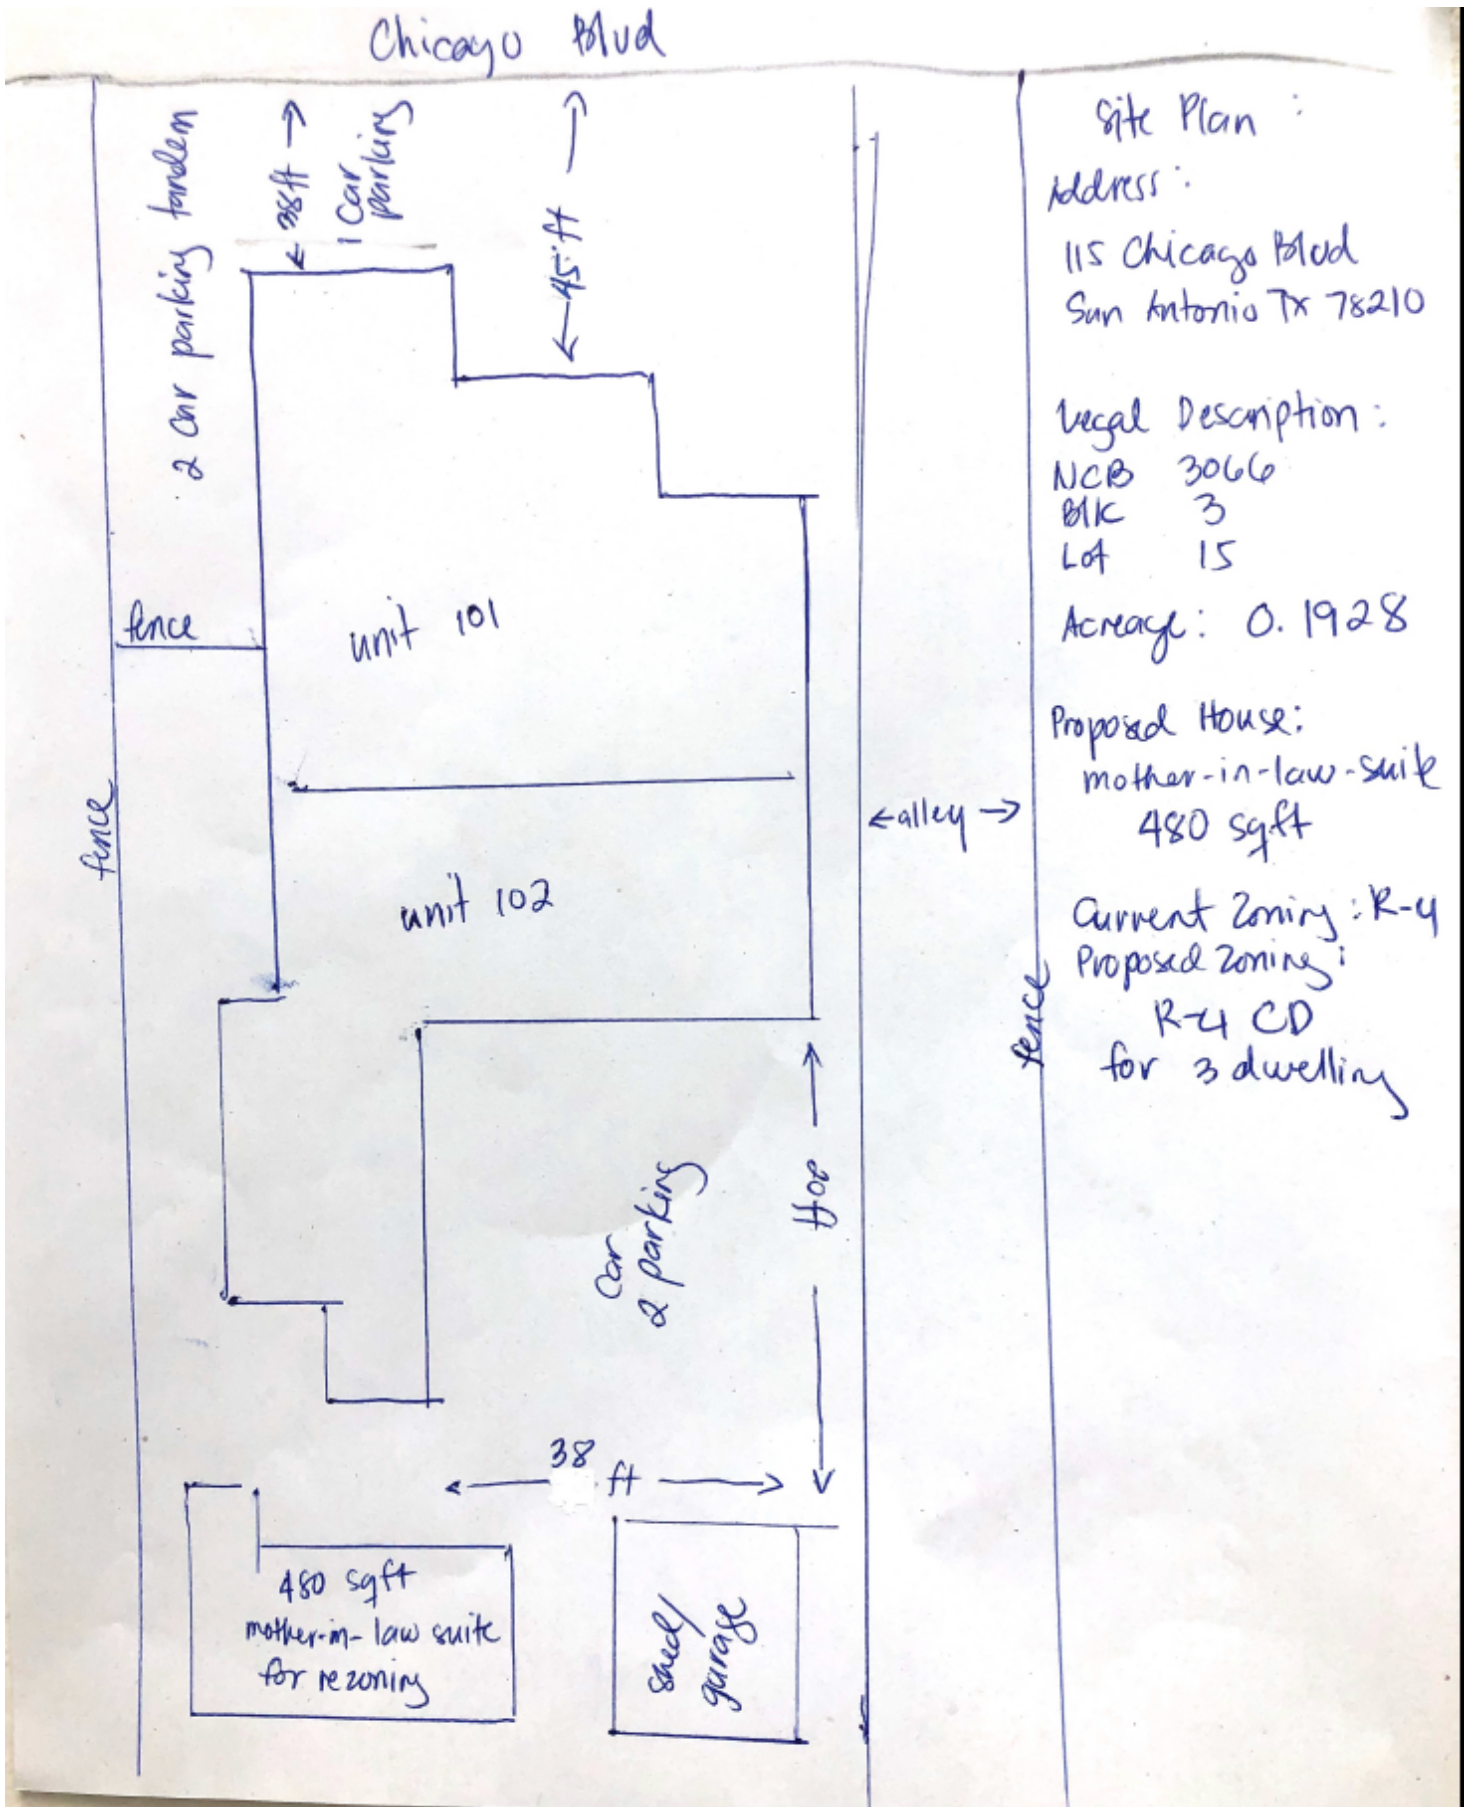 Chicago Blvd
2 car parking tandem
38ft
1 Car
parking
45 ft
fence
unit 101
fence
unit 102
←alley→
fence
Car
2 parking
38 ft
480 sqft
mother-in-law suite
for rezoning
shed/
garage
Site Plan :
Address :
115 Chicago Blvd
San Antonio TX 78210
Legal Description :
NCB 3066
Blk 3
Lot 15
Acreage : 0.1928
Proposed House :
mother-in-law-suite
480 sqft
Current Zoning : R-4
Proposed Zoning :
R-4 CD
for 3 dwelling